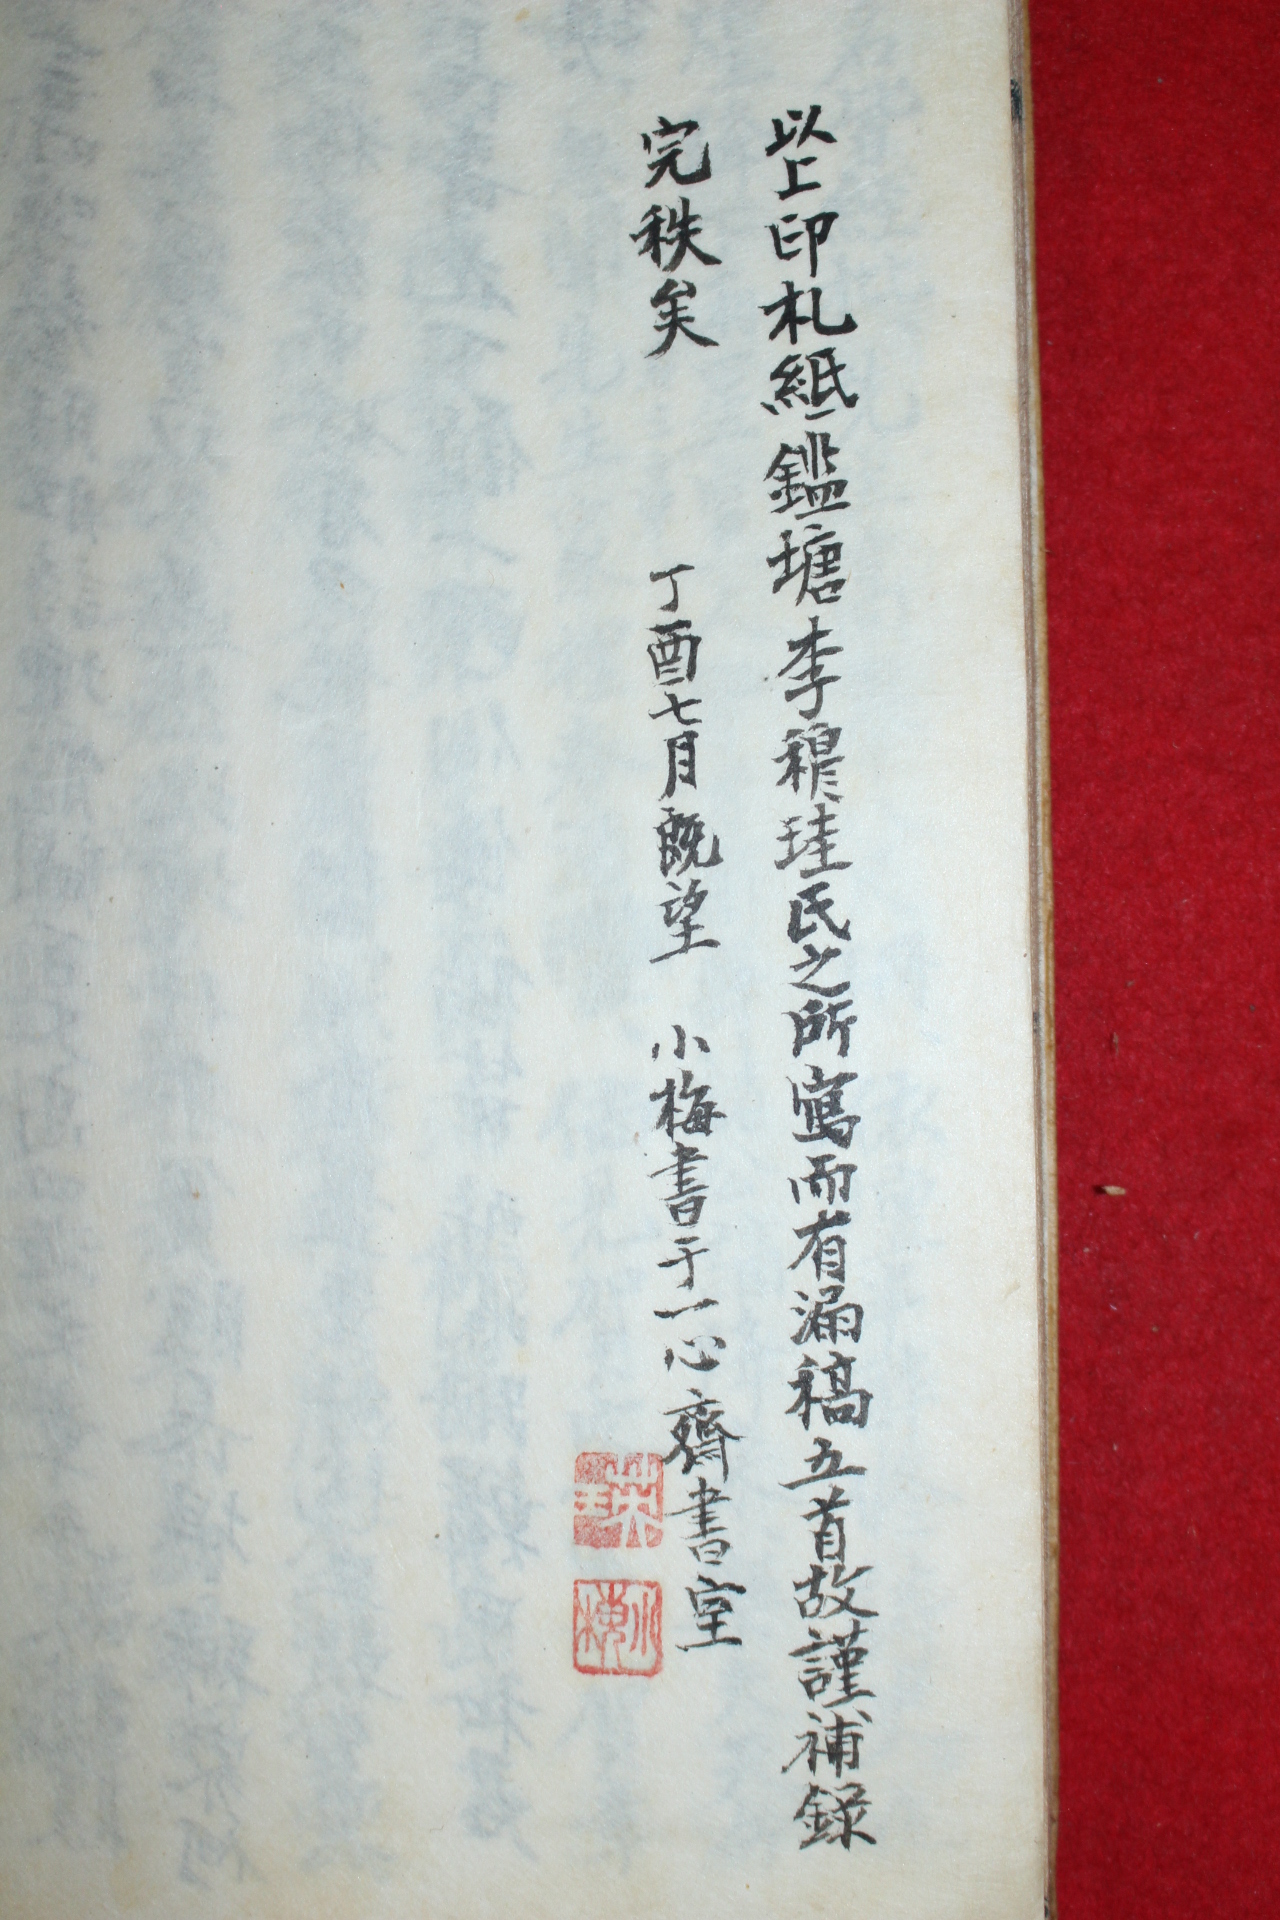 以上印札紙鑑塘李稷珪氏之所寫而有漏稿五首故謹補錄
完秩矣
丁酉七月旣望 小梅書于一心齋書室